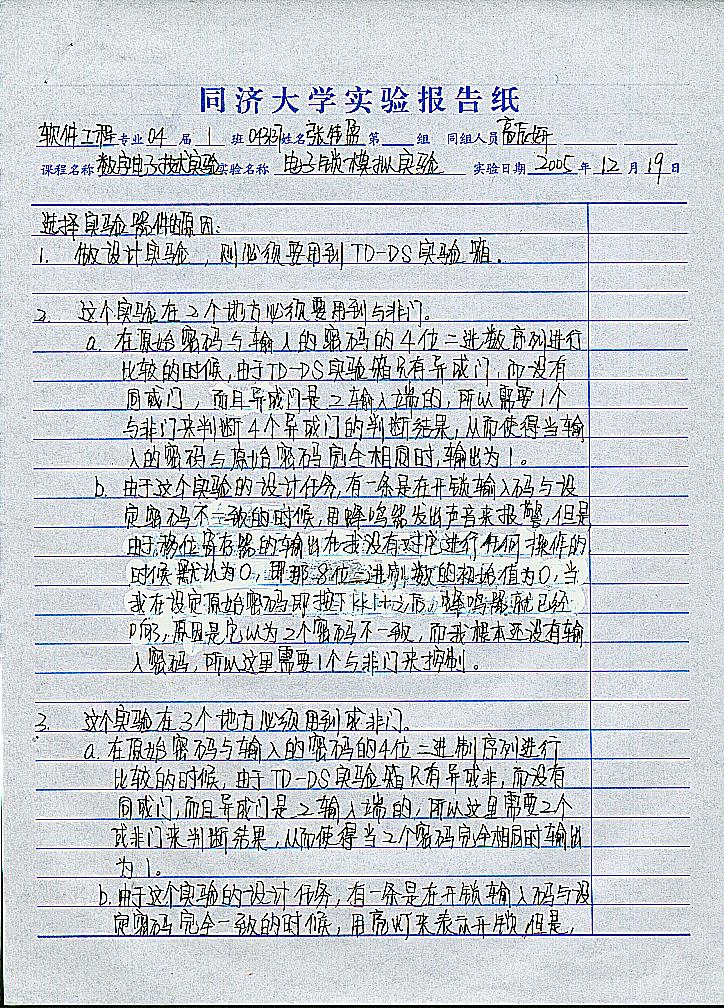 同济大学实验报告纸
软件工程专业04届1班04313姓名张 第 组 同组人员高
课程名称数字电子技术实验实验名称 电子锁模拟实验 实验日期2005年12月19日
选择实验器件的原因:
1. 做设计实验,则必须要用到TD-DS实验箱.
2. 这个实验在2个地方必须要用到与非门。
a. 在原始密码与输入的密码的4位二进数序列进行
比较的时候,由于TD-DS实验箱只有异或门,而没有
同或门,而且异或门是2输入端的,所以需要1个
与非门来判断4个异或门的判断结果,从而使得当输
入的密码与原始密码完全相同时,输出为1。
b. 由于这个实验的设计任务,有一条是在开锁输入码与设
定密码不一致的时候,用蜂鸣器发出声音来报警,但是
由于移位寄存器的输出在我没有对它进行任何操作的
时候默认为0,即那8位二进制数的初始值为0,当
我在设定原始密码即按下 之后,蜂鸣器就已经
响,原因是它认为2个密码不一致,而我根本还没有输
入密码,所以这里需要1个与非门来控制。
3. 这个实验在3个地方必须用到或非门。
a. 在原始密码与输入的密码的4位二进制序列进行
比较的时候,由于TD-DS实验箱只有异或非,而没有
同或门,而且异或门是2输入端的,所以这里需要2个
或非门来判断结果,从而使得当2个密码完全相同时输出
为1。
b. 由于这个实验的设计任务,有一条是在开锁输入码与设
定密码完全一致的时候,用亮灯来表示开锁,但是,